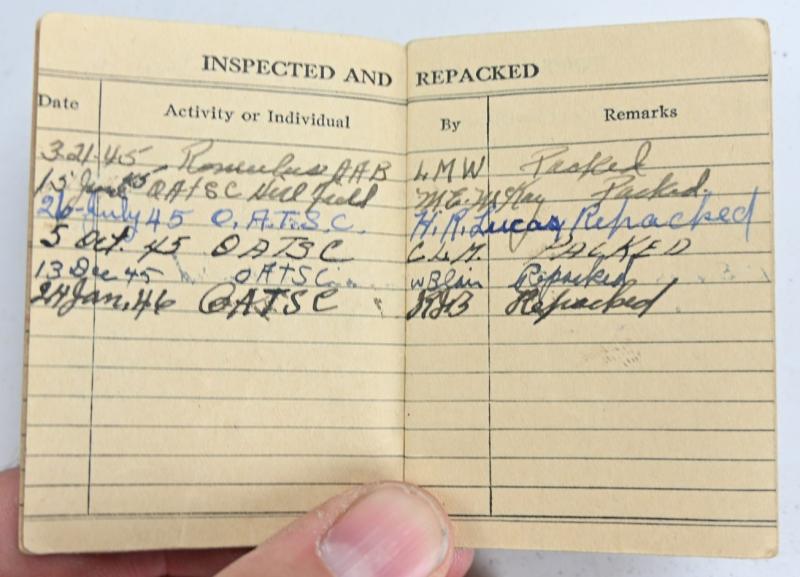 INSPECTED AND REPACKED
Date Activity or Individual By Remarks
3-21-45 Rosecrans AAB L M W Packed
15 June 45 OATSC Hill Field M.E. McKay Packed.
26-July 45 O.A.T.S.C. H.R. Lucas Repacked
5 Oct. 45 OATSC C.L.M. PACKED
13 Dec 45 OATSC W Blair Repacked
24 Jan, 46 OATSC Repacked